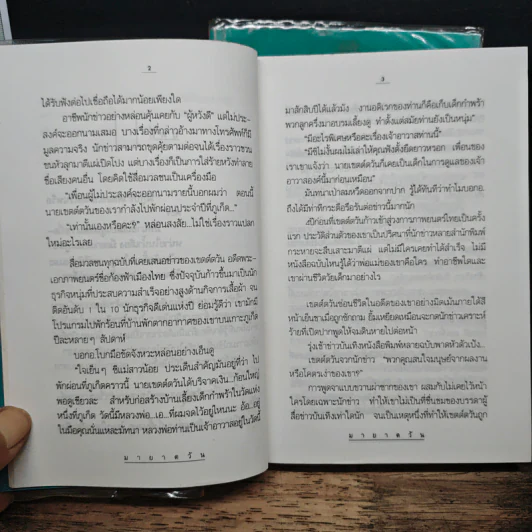 2
ได้รับฟังต่อไปเชื่อถือได้มากน้อยเพียงใด
อาชีพนักข่าวอย่างหล่อนคุ้นเคยกับ "ผู้หวังดี" แต่ไม่ประ-
สงค์จะออกนามเสมอ บางเรื่องที่กล่าวอ้างมาทางโทรศัพท์ก็มี
มูลความจริง นักข่าวสามารถขุดคุ้ยตามต่อจนได้เรื่องราวชวน
ขนหัวลุกมาตีแผ่เปิดโปง แต่บางเรื่องก็เป็นการใส่ร้ายหวังทำลาย
ชื่อเสียงคนอื่น โดยคิดใช้สื่อมวลชนเป็นเครื่องมือ
"เพื่อนผู้ไม่ประสงค์จะออกนามรายนี้บอกผมว่า ตอนนี้
นายเขตต์ตวันของเรากำลังไปพักผ่อนประจำปีที่ภูเก็ต..."
"เท่านั้นเองหรือคะ?" หล่อนสงสัย...ไม่ใช่เรื่องราวแปลก
ใหม่อะไรเลย
สื่อมวลชนทุกฉบับที่เคยเสนอข่าวของเขตต์ตวัน อดีตพระ-
เอกภาพยนตร์ชื่อก้องฟ้าเมืองไทย ซึ่งปัจจุบันก้าวขึ้นมาเป็นนัก
ธุรกิจหนุ่มที่ประสบความสำเร็จอย่างสูงด้านกิจการเสื้อผ้า จน
ติดอันดับ 1 ใน 10 นักธุรกิจดีเด่นแห่งปี ย่อมรู้ดีว่า เขามักมี
โปรแกรมไปพักร้อนที่บ้านพักตากอากาศของเขาบนเกาะภูเก็ต
ปีละหลายๆ สัปดาห์
บอกอ.ใบกมือขัดจังหวะหล่อนอย่างเอ็นดู
"ใจเย็นๆ ซิแม่สาวน้อย ประเด็นสำคัญมันอยู่ที่ว่า ไป
พักผ่อนที่ภูเก็ตคราวนี้ นายเขตต์ตวันได้บริจาคเงิน..ก้อนใหญ่
พอดูเชียวละ สำหรับก่อสร้างบ้านเลี้ยงเด็กกำพร้าในวัดแห่ง
หนึ่งที่ภูเก็ต วัดนี้มีหลวงพ่อ..เอ...ที่ผมจดไว้อยู่ไหนนะ อ้อ...อยู่
ในมือคุณนั่นแหละมัทนา หลวงพ่อท่านเป็นเจ้าอาวาสอยู่ในวัดนี้
มายาตวัน
3
มาสักสิบปีได้แล้วมั้ง งานอดิเรกของท่านก็คือเก็บเด็กกำพร้า
พวกลูกครึ่งมาอบรมเลี้ยงดู ทำตั้งแต่สมัยท่านยังเป็นหนุ่ม"
"มีอะไรพิเศษหรือคะเรื่องเจ้าอาวาสท่านนี้"
"มีซีไม่งั้นผมไม่เล่าให้คุณฟังตั้งยืดยาวหรอก เพื่อนของ
เราเขาแจ้งว่า นายเขตต์ตวันก็เคยเป็นเด็กในการดูแลของเจ้า
อาวาสองค์นี้มาก่อนเหมือน"
มัทนาเป่าลมหวือออกจากปาก รู้ได้ทันทีว่าทำไมบอกอ.
ถึงได้มีท่าทีกระตือรือร้นต่อข่าวนี้มากนัก
8ปีก่อนที่เขตต์ตวันก้าวเข้าสู่วงการภาพยนตร์ไทยเป็นครั้ง
แรก ประวัติส่วนตัวของเขาเป็นปริศนาที่นักข่าวหลายสำนักพิมพ์
กระหายจะสืบเสาะมาตีแผ่ แต่ไม่มีใครเคยทำได้สำเร็จ ไม่มี
หนังสือฉบับไหนรู้ได้ว่าพ่อแม่ของเขาคือใคร ทำอาชีพใดและ
เขาผ่านชีวิตวัยเด็กมาอย่างไร
เขตต์ตวันซ่อนชีวิตในอดีตของเขาอย่างมิดเม้นภายใต้สี
หน้าเย็นชาเมื่อถูกซักถาม ยิ้มเหยียดเหมือนจะกดนักข่าวเคราะห์
ร้ายที่เปิดปากพูดให้จมดินหายไปต่อหน้า
รุ่งเช้าข่าวบันเทิงหนังสือพิมพ์หลายฉบับพาดหัวตัวเป้ง...
เขตต์ตวันจวกนักข่าว "พวกคุณสนใจมนุษย์จากผลงาน
หรือโคตรเง่าของเขา?"
การพูดจาแบบขวานผ่าซากของเขา ผสมกับไม่เคยไว้หน้า
ใครโดยเฉพาะนักข่าว ทำให้เขาไม่เป็นที่ชื่นชมของบรรดาผู้
สื่อข่าวบันเทิงเท่าใดนัก จนเป็นเหตุหนึ่งที่ทำให้เขตต์ตวันถูก
มายาตวัน